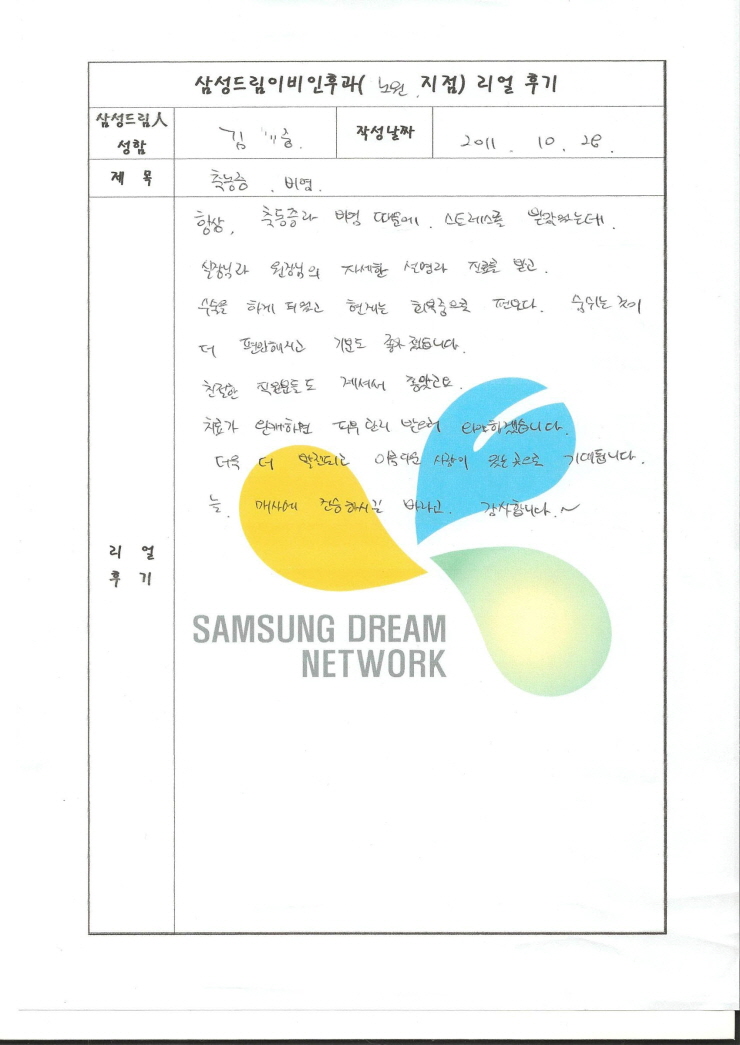 삼성드림이비인후과( 노원 지점) 리얼 후기
삼성드림人 성함
김
작성날짜
2011. 10. 28.
제 목
축농증, 비염.
항상, 축농증과 비염 때문에. 스트레스를 받았었는데.
실장님과 원장님의 자세한 설명과 진료를 받고.
수술을 하게 되었고 현재는 회복중으로 편하다. 숨쉬는 것이
더 편안해지고 기분도 좋아졌습니다.
친절한 직원분들도 계셔서 좋았고요.
치료가 완쾌하면 피부관리 받으러
더욱 더 발전되고 아름다운 사랑이 있는 곳으로 기대됩니다.
늘, 매사에 건승하시길 바라고. 감사합니다.~
리 얼
후 기
SAMSUNG DREAM
NETWORK